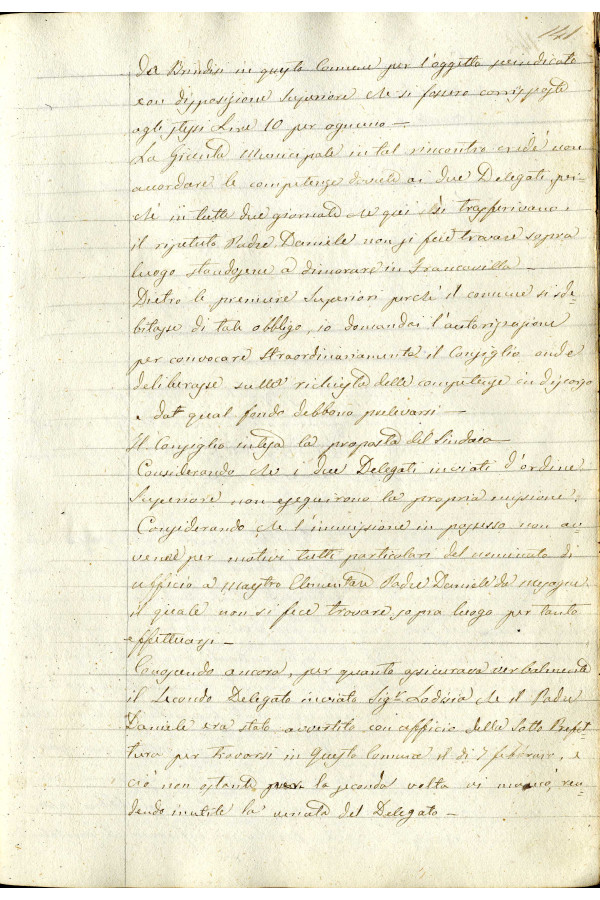 141
da Brindisi in questo Comune per l'oggetto sovindicato
con disposizione Superiore che si fossero corrisposte
agli stessi Lire 10 per ognuno —
La Giunta Municipale in tal rincontro credé non
accordare le competenze dovute ai due Delegati, per-
ché in tutte due giornate che qui si trasferivano,
il ripetuto Padre Daniele non si fece trovare sopra
luogo standosene a dimorare in Francavilla —
Dietro le premure Superiori perché il comune si sde-
bitasse di tale obbligo, io domandai l'autorizzazione
per convocare straordinariamente il Consiglio onde
deliberasse sulla richiesta delle competenze in discorso
e dal qual fondo debbono prelevarsi —
Il Consiglio intesa la proposta del Sindaco
Considerando che i due Delegati inviati d'ordine
Superiore non eseguirono la propria missione,
Considerando che l'immissione in possesso non av-
venne per motivi tutti particolari del nominato di
ufficio a Maestro Elementare Padre Daniele da Mesagne
il quale non si fece trovare sopra luogo per tanto
effettuarsi —
Conoscendo ancora, per quanto assicurava verbalmente
il Secondo Delegato inviato Sigr. che il Padre
Daniele era stato avvertito con ufficio della Sotto Prefet-
tura per trovarsi in questo Comune il dì 7 febbraro, e
ciò non ostante la seconda volta vi mancò, ren-
dendo inutile la venuta del Delegato —